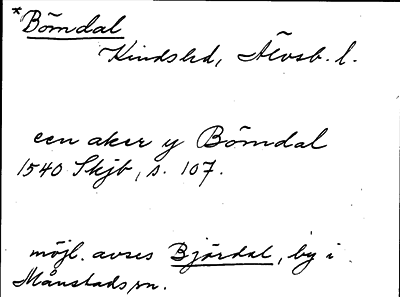 *Bömdal
Kindshd, Älvsb. l.
een aker y Bömdal
1540 Skjb, s. 107.
möjl. avses Bjärdal, by i
Månstads sn.